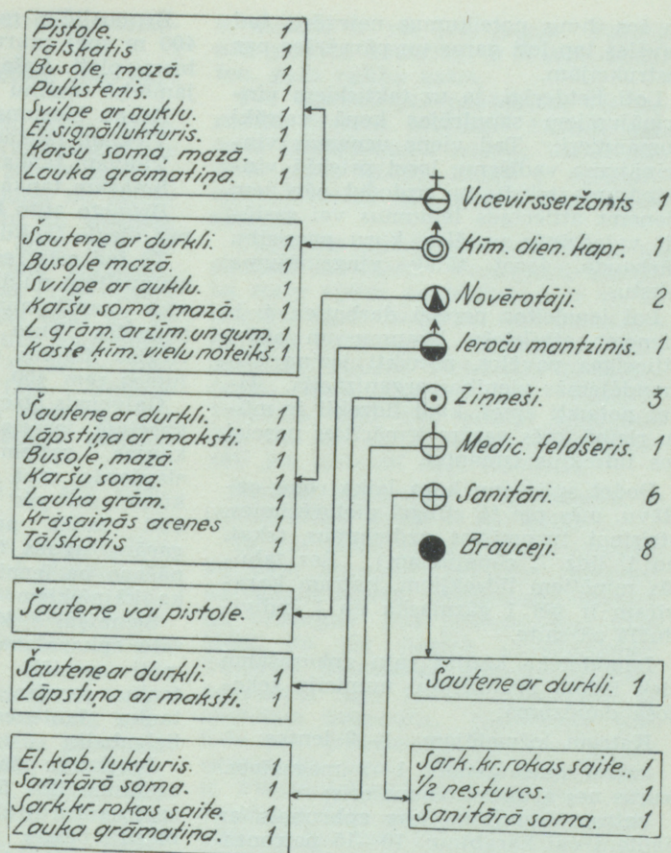 Pistole. 1
Tālskatis 1
Busole, mazā. 1
Pulkstenis. 1
Svilpe ar auklu. 1
El. signāllukturis. 1
Karšu soma, mazā. 1
Lauka grāmatiņa. 1
Šautene ar durkli. 1
Busole mazā. 1
Svilpe ar auklu. 1
Karšu soma, mazā. 1
L. grām. ar zīm. un gum. 1
Kaste ķīm. vielu noteikš. 1
Šautene ar durkli. 1
Lāpstiņa ar maksti. 1
Busole, mazā. 1
Karšu soma. 1
Lauka grām. 1
Krāsainās acenes 1
Tālskatis 1
Šautene vai pistole. 1
Šautene ar durkli. 1
Lāpstiņa ar maksti. 1
El. kab. lukturis. 1
Sanitārā soma. 1
Sark. kr. rokas saite. 1
Lauka grāmatiņa. 1
Vicevirsseržants 1
Ķīm. dien. kapr. 1
Novērotāji. 2
Ieroču mantzinis. 1
Ziņneši. 3
Medic. feldšeris. 1
Sanitāri. 6
Brauceji. 8
Šautene ar durkli. 1
Sark. kr. rokas saite. 1
1/2 nestuves. 1
Sanitārā soma. 1